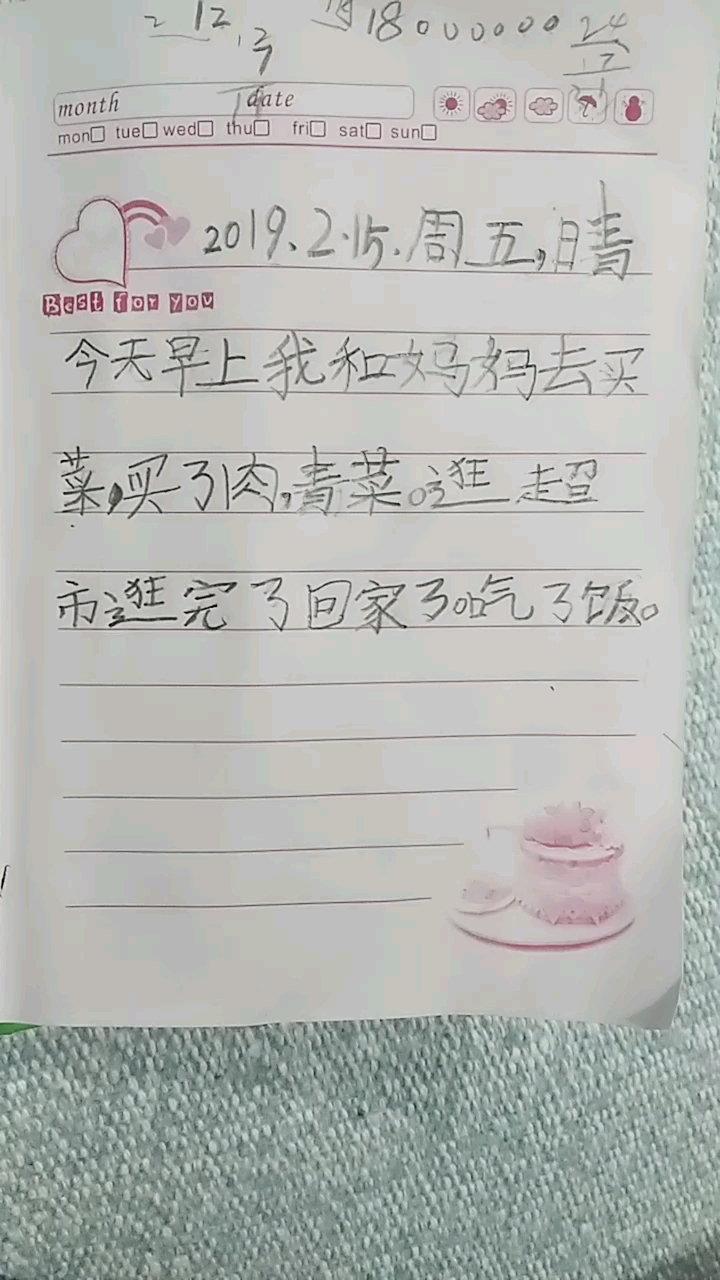 2 12
18000000 24
17
month date
mon tue wed thu fri sat sun
2019.2.15.周五,晴
Best for you
今天早上我和妈妈去买
菜,买了肉,青菜。逛超
市逛完了回家了吃了饭。